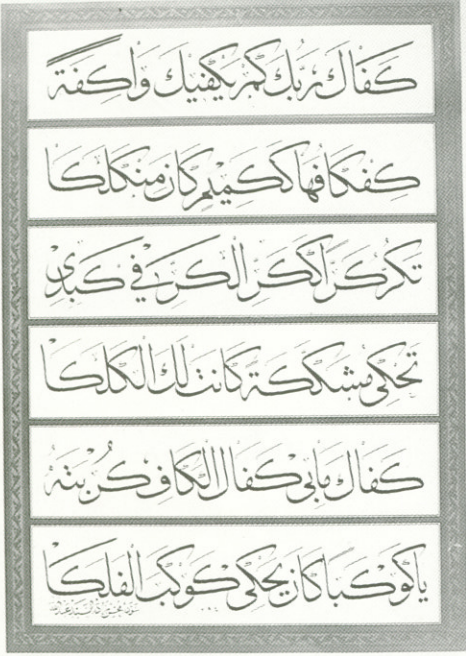 كفاك ربك كم يكفيك واكفة
كفكافها ككمين كان من كلكا
تكر كرا ككر الكر في كبد
تحكي مشكشكة كانت لك الكلكا
كفاك مابي كفاك الكاف كربته
ياكوكبا كان يحكي كوكب الفلكا